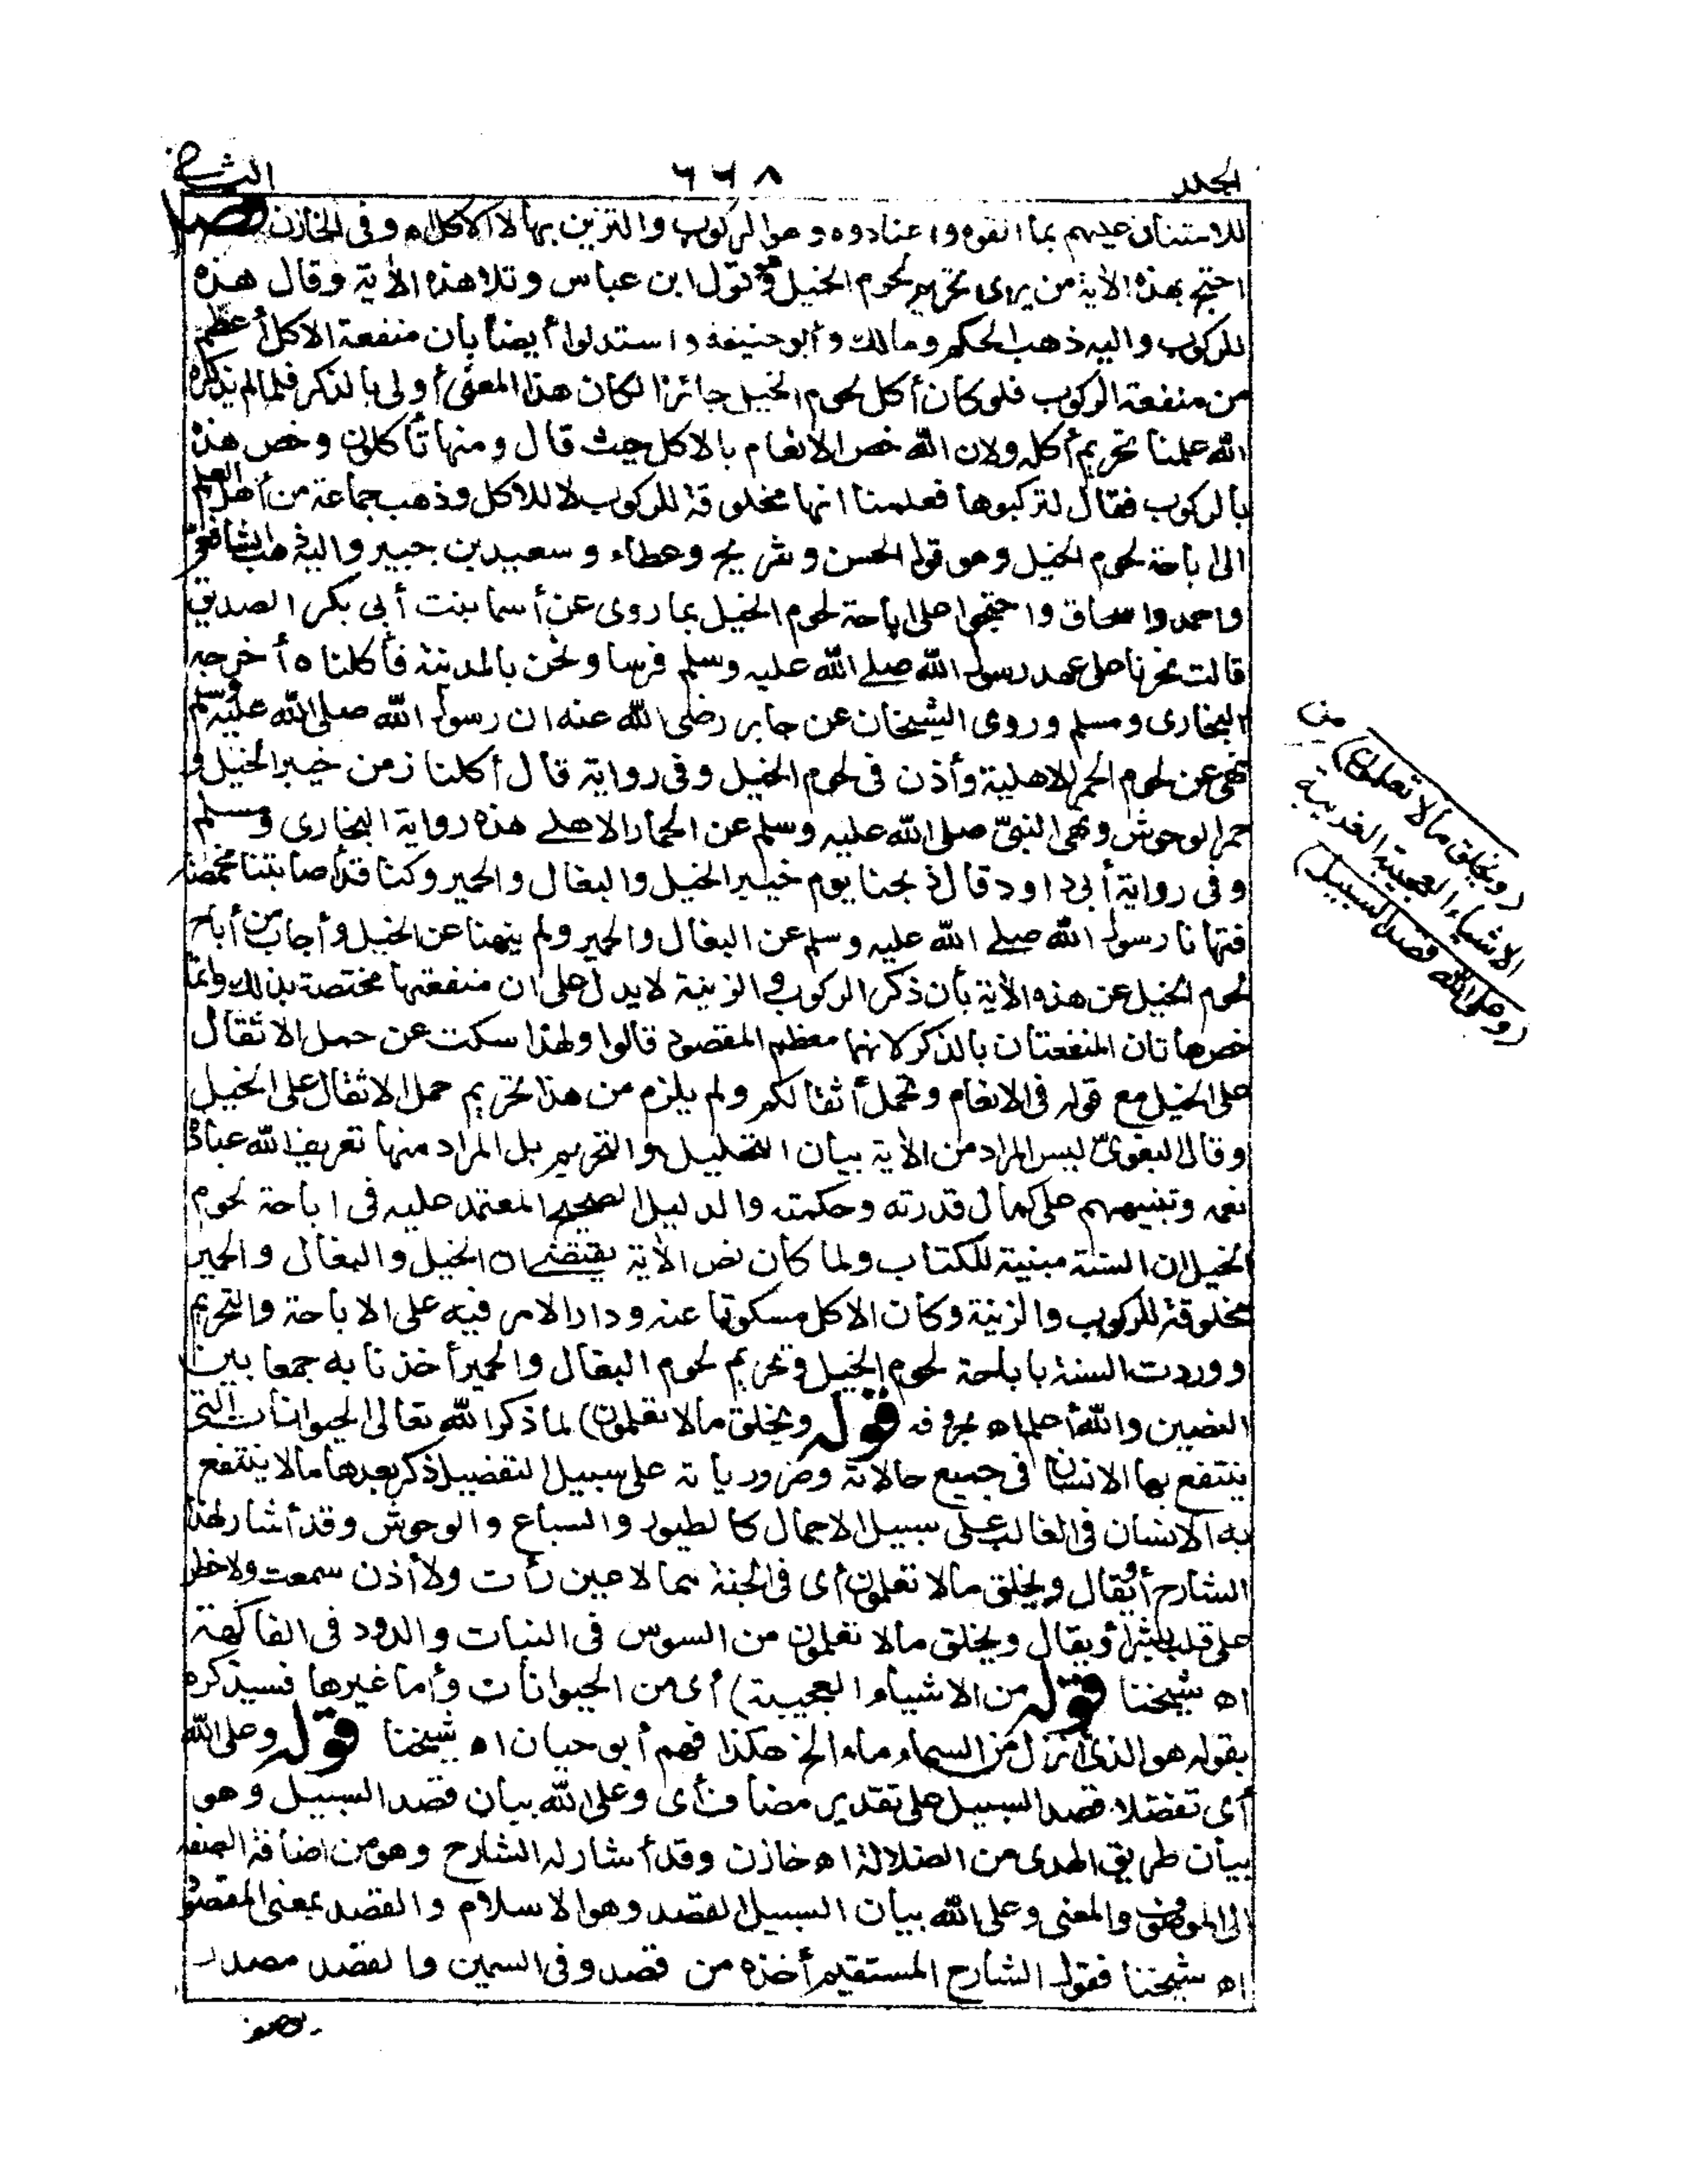 الجلد ٦٦٨ الثانى
للامتنان عليهم بما ألفوه واعتادوه وهو الركوب والتزين بها لا الاكل اه وفى الخازن فصل
احتج بهذه الأية من يرى تحريم لحوم الخيل وهو قول ابن عباس وتلا هذه الأية وقال هذه
للركوب واليه ذهب الحكم ومالك وأبو حنيفة واستدلوا أيضا بأن منفعة الاكل أعظم
من منفعة الركوب فلو كان أكل لحوم الخيل جائزا لكان هذا المعنى أولى بالذكر فلما لم يذكره
الله علمنا تحريم أكله ولان الله خص الانعام بالاكل حيث قال ومنها تأكلون وخص هذه
بالركوب فقال لتركبوها فعلمنا انها مخلوقة للركوب لا للاكل وذهب جماعة من أهل العلم
الى اباحة لحوم الخيل وهو قول الحسن وشريح وعطاء وسعيد بن جبير واليه ذهب الشافعى
واحمد واسحاق واحتجوا على اباحة لحوم الخيل بما روى عن أسما بنت أبى بكر الصديق
قالت نحرنا على عهد رسول الله صلى الله عليه وسلم فرسا ونحن بالمدينة فأكلناه أخرجه
البخارى ومسلم وروى الشيخان عن جابر رضى الله عنه ان رسول الله صلى الله عليه وسلم
نهى عن لحوم الحمر الاهلية وأذن فى لحوم الخيل وفى رواية قال أكلنا زمن خيبر الخيل و
حمر الوحوش ونهى النبىّ صلى الله عليه وسلم عن الحمار الاهلى هذه رواية البخارى ومسلم
وفى رواية أبى داود قال ذبحنا يوم خيبر الخيل والبغال والحمير وكنا قد أصابتنا مخمصة
فنهانا رسول الله صلى الله عليه وسلم عن البغال والحمير ولم ينهنا عن الخيل وأجاب من أباح
لحوم الخيل عن هذه الأية بأن ذكر الركوب والزينة لا يدل على ان منفعتها مختصة بذلك وانما
خص هاتان المنفعتان بالذكر لانهما معظم المقصود قالوا ولهذا سكت عن حمل الاثقال
على الخيل مع قوله فى الانعام وتحمل أثقالكم ولم يلزم من هذا تحريم حمل الاثقال على الخيل
وقال البغوىّ ليس المراد من الأية بيان التحليل والتحريم بل المراد منها تعريف الله عباده
نعمه وتنبيههم على كمال قدرته وحكمته والدليل الصحيح المعتمد عليه فى اباحة لحوم
الخيل ان السنة مبينة للكتاب ولما كان نص الأية يقتضى ان الخيل والبغال والحمير
مخلوقة للركوب والزينة وكان الاكل مسكوتا عنه ودار الامر فيه على الاباحة والتحريم
ووردت السنة باباحة لحوم الخيل وتحريم لحوم البغال والحمير أخذنا به جمعا بين
النصين والله أعلم اه بحروفه قوله ويخلق مالا تعلمون) لما ذكر الله تعالى الحيوانات التى
ينتفع بها الانسان فى جميع حالاته وضرورياته على سبيل التفصيل ذكر بعدها مالا ينتفع
به الانسان فى الغالب على سبيل الاجمال كالطيور والسباع والوحوش وقد أشار لهذا
الشارح أو يقال ويخلق مالا تعلمون أى فى الجنة مما لا عين رأت ولا أذن سمعت ولا خطر
على قلب بشر أو يقال ويخلق مالا تعلمون من السوس فى النبات والدود فى الفاكهة
اه شيخنا قوله من الاشياء العجيبة) أى من الحيوانات وأما غيرها فسيذكره
بقوله هو الذى أنزل من السماء ماء الخ هكذا فهم أبو حيان اه شيخنا قوله وعلى الله
أى تفضلا قصد السبيل على تقدير مضاف أى وعلى الله بيان قصد السبيل وهو
بيان طريق الهدى من الضلالة اه خازن وقد أشار له الشارح وهو من اضافة الصفة
الى الموصوف والمعنى وعلى الله بيان السبيل القصد وهو الاسلام والقصد بمعنى المقصود
اه شيخنا فقول الشارح المستقيم أخذه من قصد وفى السمين والقصد مصدر
يوصف
(ويخلق مالا تعلمون) من
الاشياء العجيبة الغريبة
(وعلى الله قصد السبيل)